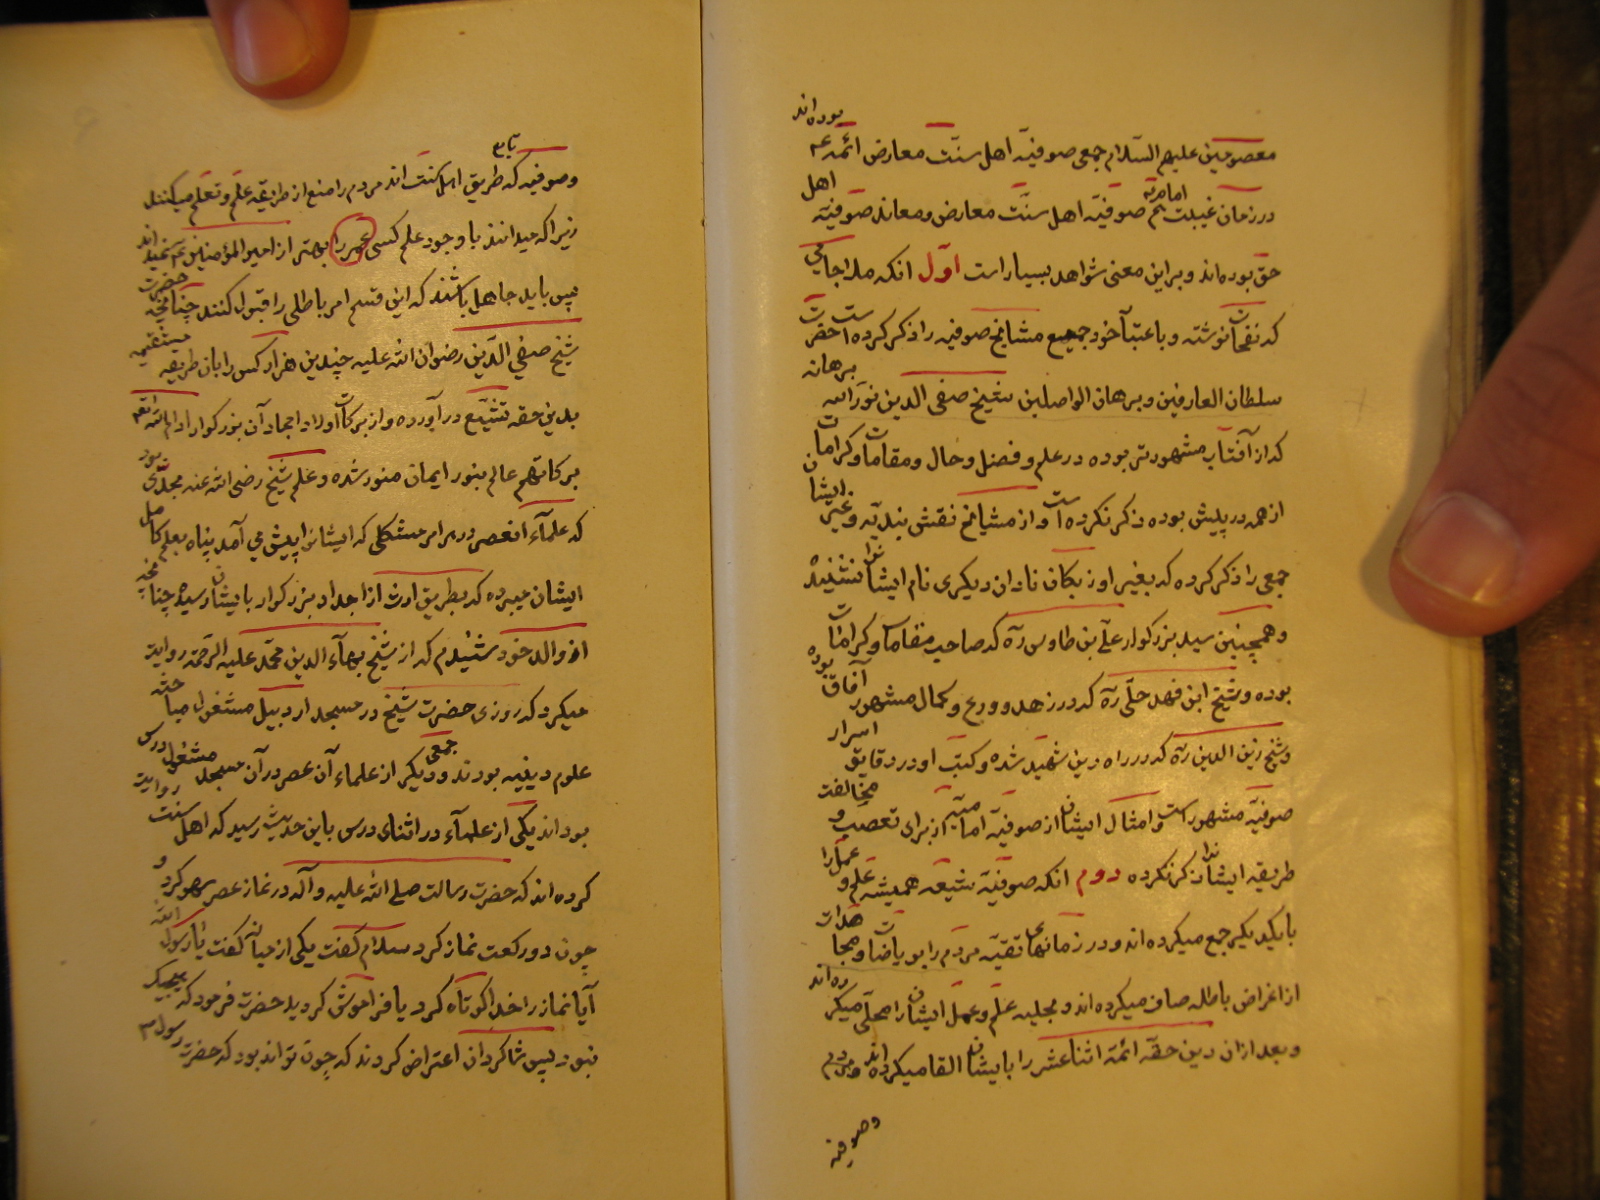 معصومین علیهم السّلام جمعی صوفیّه اهل سنّت معارض ائمّه ع م بوده‌اند
در زمان غیبت هم صوفیّه اهل سنّت معارض و معاند صوفیّه امامیّه اهل
حق بوده‌اند و بر این معنی شواهد بسیار است اوّل انکه ملا جامی
که نفحات نوشته و باعتبار خود جمیع مشایخ صوفیه را ذکر کرده است حضرت
سلطان العارفین و برهان الواصلین شیخ صفی الدین نوّر الله برهانه
که از آفتاب مشهورتر بوده در علم و فضل و حال و مقامات و کرامات
از همه در پیش بوده ذکر نکرده است و از مشایخ نقش بندیّه و غیر ایشان
جمعی را ذکر کرده که بغیر اوزبکان نادان دیکری نام ایشانرا نشنیده
و همچنین سید بزرکوار علی بن طاوس ره که صاحب مقامات و کرامات
بوده و شیخ ابن فهد حلّی ره که در زهد و ورع و کمال مشهور آفاق بوده
و شیخ زین الدین ره که در راه دین شهید شده و کتب او در دقایق اسرار
صوفیّه مشهور است و امثال ایشان از صوفیّه امامیّه از برای تعصّب و مخالفت
طریقه ایشان ذکر نکرده دوم انکه صوفیّه شیعه همیشه علم و عمل را
با یکدیکر جمع میکرده‌اند و در زمانهای تقیّه مردم را بریاضات و مجاهدات
از اغراض باطله صاف میکرده‌اند و بحلیه علم و عمل ایشان را محلّی میکرده‌اند
و بعد از ان دین حقّه ائمّه اثناعشر را بایشان القا میکرده‌اند و مردم
وصوفیه
وصوفیه که طریق اهل سنت اند مردم را منع از طریقه علم و تعلم میکنند
زیرا که میدانند با وجود علم کسی عمر را بهتر از امیر المؤمنین ع نمیداند
پس باید جاهل باشند که این قسم امر باطلی را قبول کنند چنانچه حضرت
شیخ صفی الدّین رضوان الله علیه چندین هزار کس را بان طریقه مستقیمه
بدین حقه تشیّع در آورده و از برکات اولاد امجاد آن بزرکوار ادام الله
برکاتهم عالم بنور ایمان منور شده و علم شیخ رضی الله عنه بحدّی بود
که علمآء آنعصر در هر امر مشکلی که ایشانرا پیش می آمد پناه بعلم کامل
ایشان میبرده که بطریق ارث از اجداد بزرکوار بایشان رسیده چنانچه
از والد خود شنیدم که از شیخ بهآء الدین محمّد علیه الرّحمه روایت
میکرد که روزی حضرت شیخ در مسجد اردبیل مشغول مباحثه
علوم دینیه بودند و جمعی دیکر از علماء آن عصر در آن مسجد مشغول درس
بوده اند یکی از علمآء در اثنای درس باین حدیث رسید که اهل سنت روایت
کرده اند که حضرت رسالت صلی الله علیه و آله در نماز عصر سهو کرد و
چون دو رکعت نماز کرد سلام کفت یکی از صحابه کفت یا رسول الله
آیا نماز را خدا کوتاه کرد یا فراموش کردید حضرت فرمود که هیچیک
نبود پس شاکردان اعتراض کردند که چون تواند بود که حضرت رسول ص